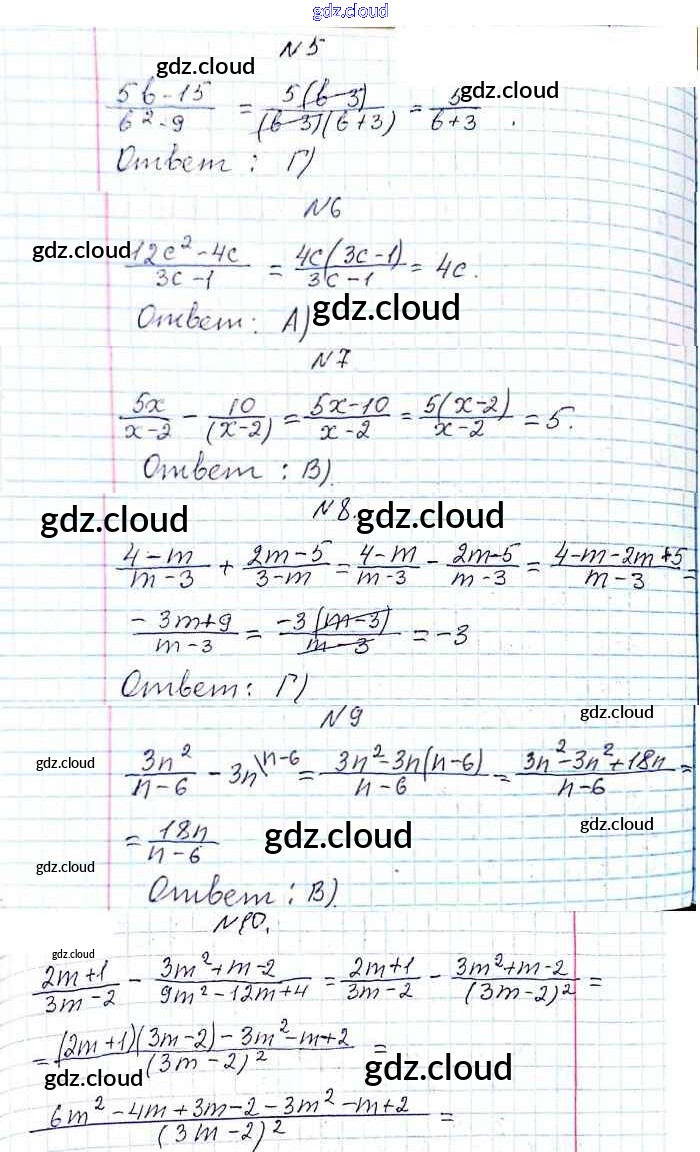 gdz.cloud
N 5
gdz.cloud
gdz.cloud
(5b-15)/(b²-9) = 5(b-3)/((b-3)(b+3)) = 5/(b+3).
Ответ: Г)
N6
gdz.cloud
(12c²-4c)/(3c-1) = 4c(3c-1)/(3c-1) = 4c.
Ответ: А)
gdz.cloud
N7
5x/(x-2) - 10/(x-2) = (5x-10)/(x-2) = 5(x-2)/(x-2) = 5.
Ответ: В)
gdz.cloud
N8.
gdz.cloud
(4-m)/(m-3) + (2m-5)/(3-m) = (4-m)/(m-3) - (2m-5)/(m-3) = (4-m-2m+5)/(m-3) =
(-3m+9)/(m-3) = -3(m-3)/(m-3) = -3
Ответ: Г)
N9
gdz.cloud
gdz.cloud
3n²/(n-6) - 3n\n-6 = (3n²-3n(n-6))/(n-6) = (3n²-3n²+18n)/(n-6) =
= 18n/(n-6)
gdz.cloud
gdz.cloud
gdz.cloud
Ответ: В)
N10.
gdz.cloud
(2m+1)/(3m-2) - (3m²+m-2)/(9m²-12m+4) = (2m+1)/(3m-2) - (3m²+m-2)/(3m-2)² =
= ((2m+1)(3m-2)-3m²-m+2)/(3m-2)² =
gdz.cloud
gdz.cloud
(6m²-4m+3m-2-3m²-m+2)/(3m-2)² =